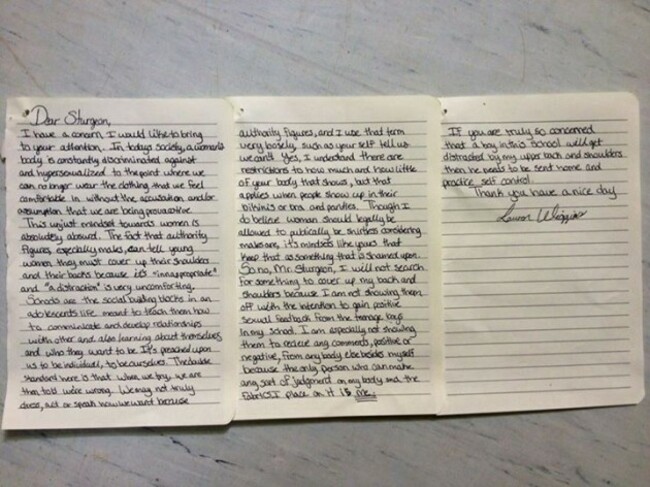 Dear Sturgeon,
I have a concern I would like to bring
to your attention. In todays society, a woman's
body is constantly discriminated against
and hypersexualized to the point where we
can no longer wear the clothing that we feel
comfortable in without the accusation and/or
assumption that we are being provocative.
This unjust mindset towards women is
absolutely absurd. The fact that authority
figures, especially males, can tell young
women they must cover up their shoulders
and their backs because it's "innappropriate"
and "a distraction" is very uncomforting.
Schools are the social building blocks in an
adolescents life meant to teach them how
to communicate and develop relationships
with other and also learning about themselves
and who they want to be. It's preached upon
us to be individual, to be ourselves. The double
standard here is that when we try, we are
then told we're wrong. We may not truly
dress, act or speak how we want because
authority figures, and I use that term
very loosely, such as your self tell us
we can't. Yes, I understand there are
restrictions to how much and how little
of your body that shows, but that
applies when people show up in their
bikinis or bra and panties. Though I
do believe woman should legally be
allowed to publically be shirtless considering
males are, it's mindsets like yours that
keep that as something that is shamed upon.
So no, Mr. Sturgeon, I will not search
for something to cover up my back and
shoulders because I am not showing them
off with the intention to gain positive
sexual feedback from the teenage boys
in my school. I am especially not showing
them to recieve any comments, positive or
negative, from any body else besides myself
because the only person who can make
any sort of judgement on my body and the
fabrics I place on it is me.
If you are truly so concerned
that a boy in this school will get
distracted by my upper back and shoulders
then he needs to be sent home and
practice self control.
Thank you have a nice day
Lauren Wiggins